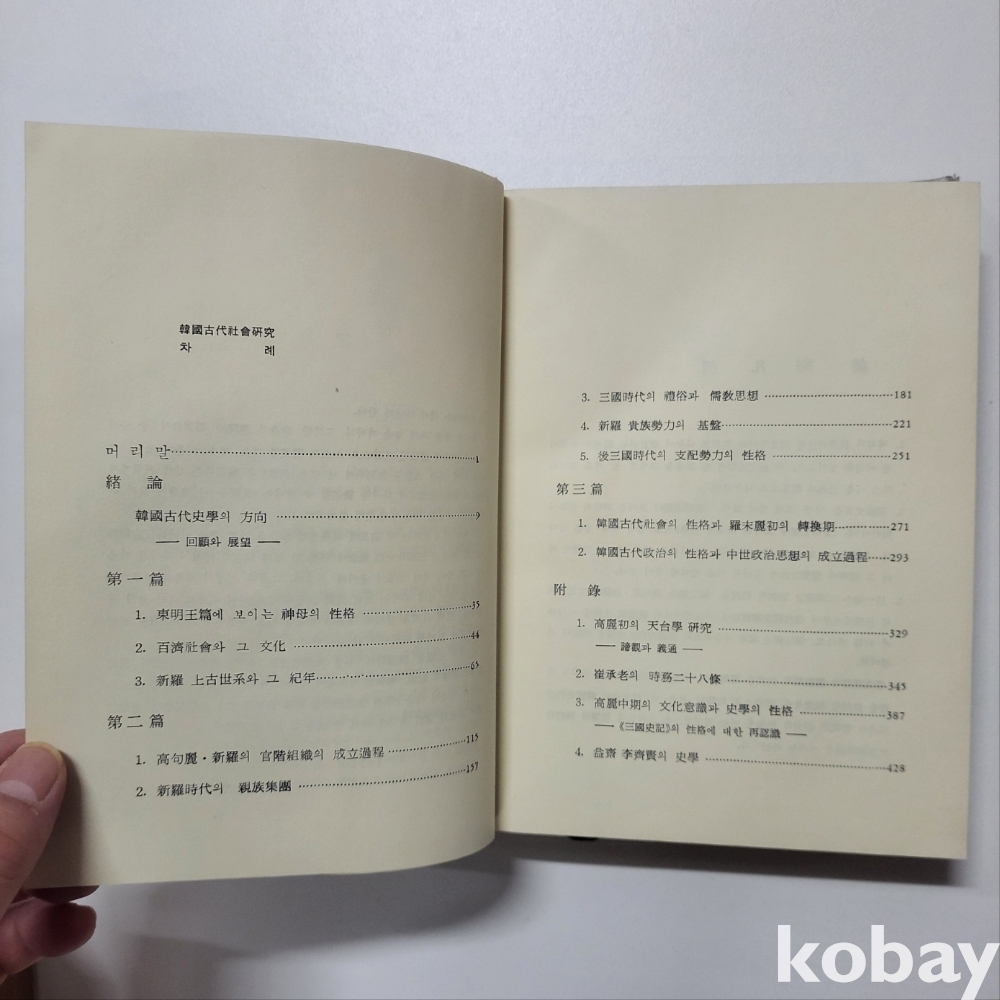 韓國古代社會硏究
차 례
머 리 말 1
緖 論
韓國古代史學의 方向 9
── 回顧와 展望 ──
第 一 篇
1. 東明王篇에 보이는 神母의 性格 35
2. 百濟社會와 그 文化 44
3. 新羅 上古世系와 그 紀年 65
第 二 篇
1. 高句麗·新羅의 官階組織의 成立過程 115
2. 新羅時代의 親族集團 157
3. 三國時代의 禮俗과 儒敎思想 181
4. 新羅 貴族勢力의 基盤 221
5. 後三國時代의 支配勢力의 性格 251
第 三 篇
1. 韓國古代社會의 性格과 羅末麗初의 轉換期 271
2. 韓國古代政治의 性格과 中世政治思想의 成立過程 293
附 錄
1. 高麗初의 天台學 硏究 329
── 諦觀과 義通 ──
2. 崔承老의 時務二十八條 345
3. 高麗中期의 文化意識과 史學의 性格 387
──《三國史記》의 性格에 대한 再認識 ──
4. 益齋 李齊賢의 史學 428
kobay